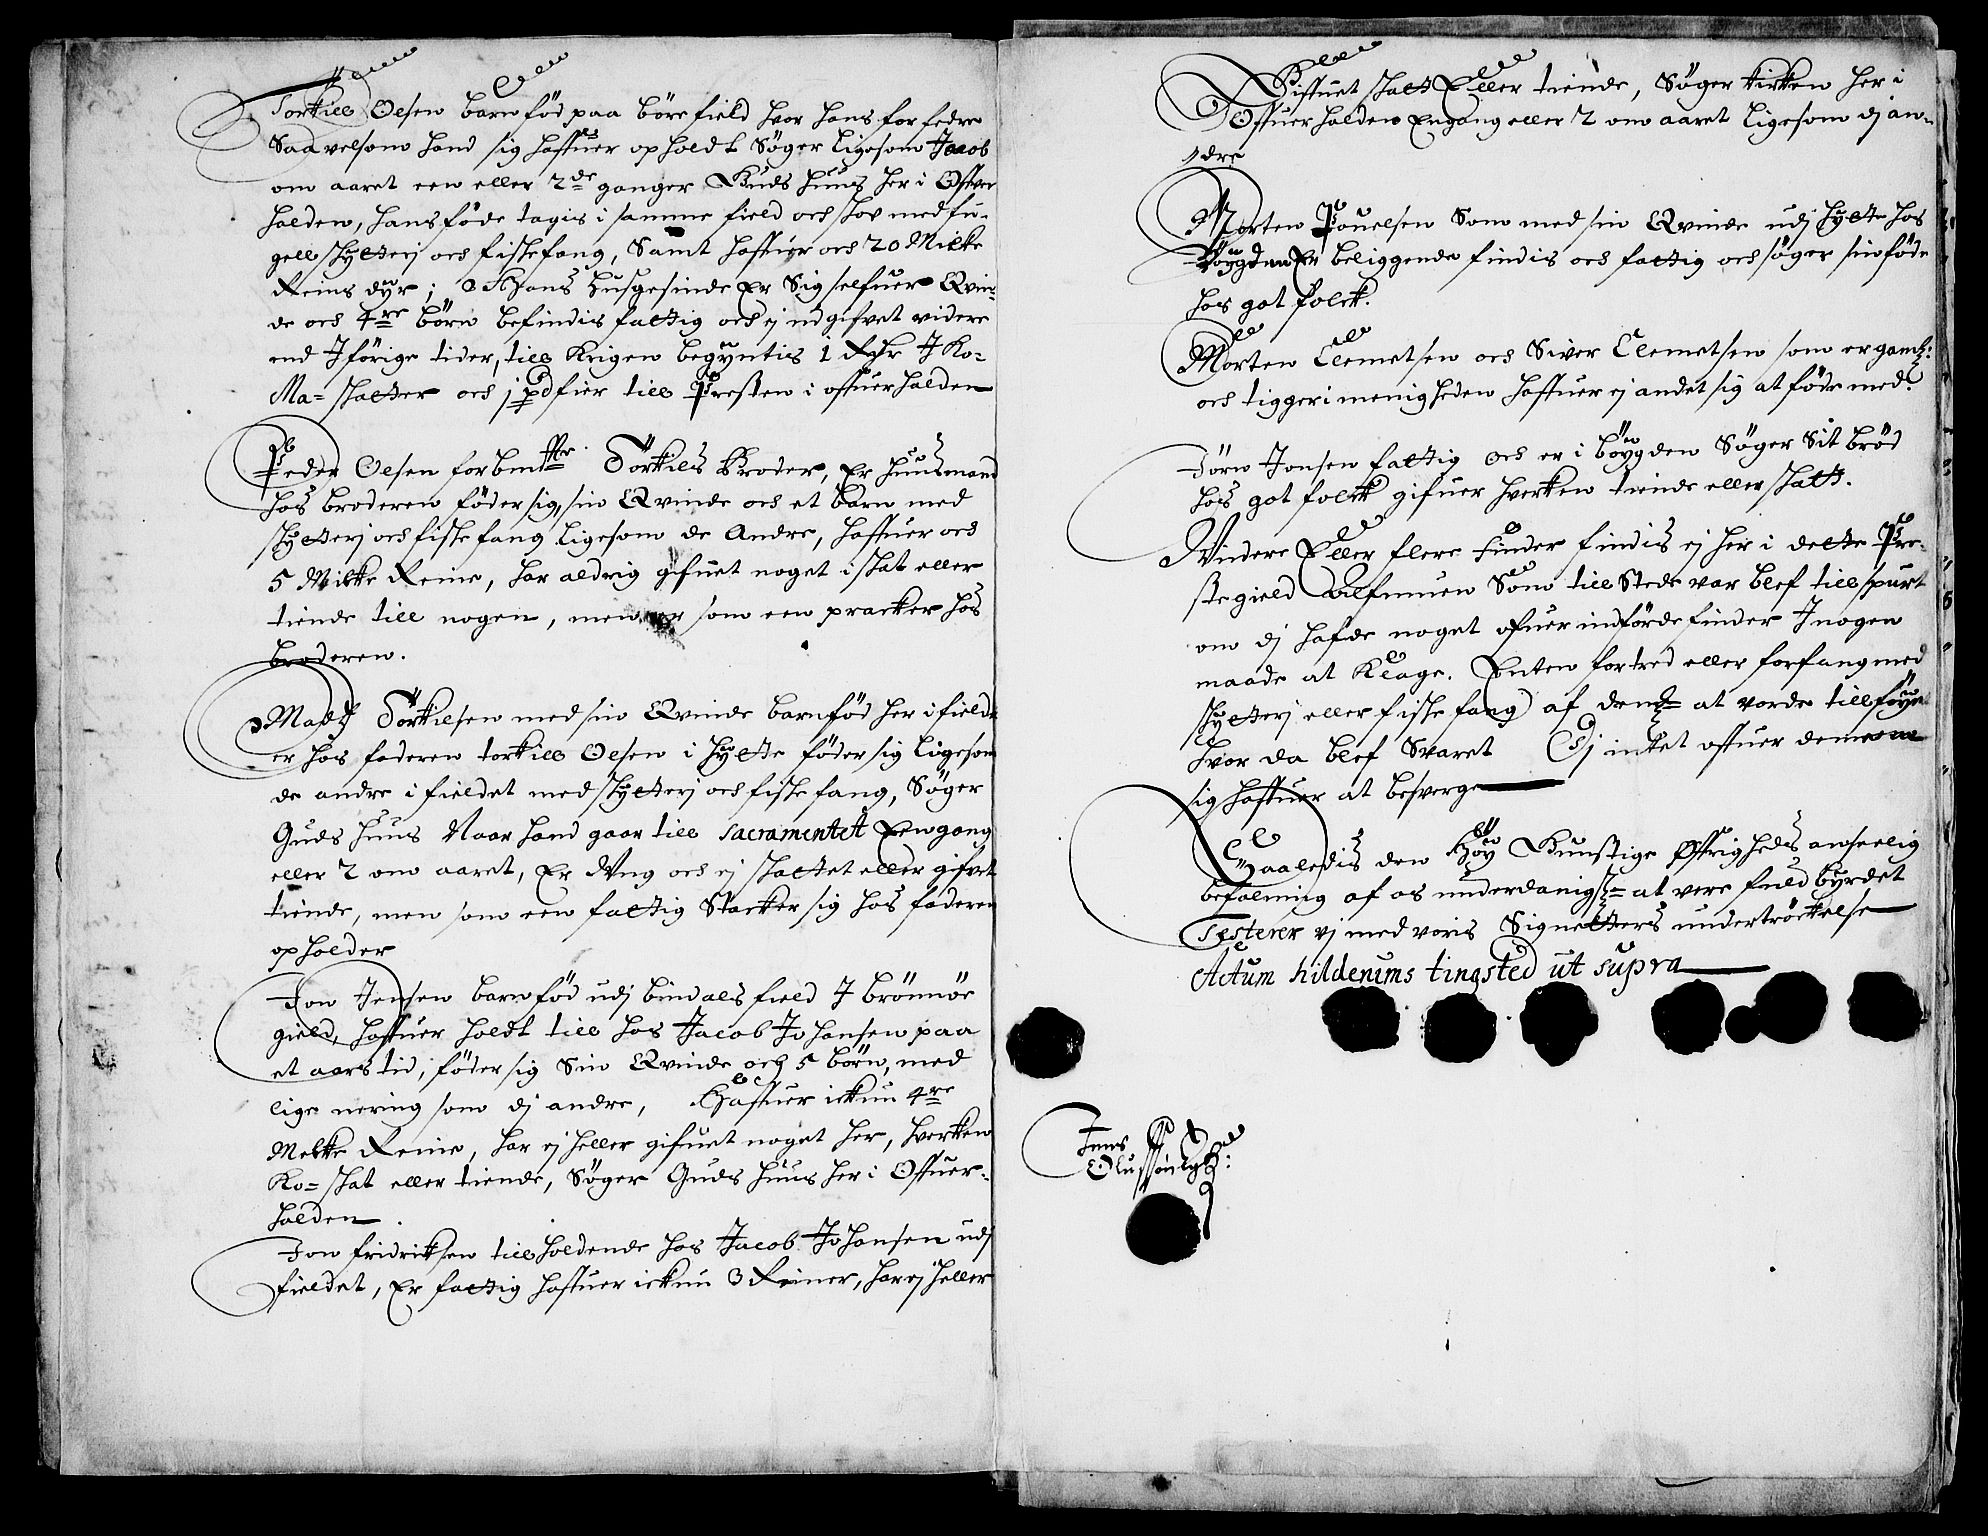 Torkild Olsen barnfød paa børe field hvor hans forfedre
Saa velsom hand sig haffuer opholdt Søger ligesom Jacob
om aaret een eller 2de ganger Guds huus her i Offver
halden, hans føde tagis i samme field och skov med fu-
gell skytterj och fiskefang, Samt haffuer och 20 Milke
Reins dyr; Hans Husgesinde Er Sig selfuer Qvin-
de och 4re børn befindis fattig och ej udgifvet videre
end J førige tider, till Krigen begyntis 1 Rdr J Ko-
Ma= skatter och j pd fier till Presten i offuerhalden
Peder Olsen forbmte Törkils Broder, Er huusmand
hos broderen føder sig, sin Qvinde och et barn med
skytterj och fiske fang ligesom de Andre, haffuer och
5 Milke Reine, har aldrig gifuet noget i skat eller
tiende till nogen, men er som een pracker hos
broderen.
Madtz Törkilsen med sin Qvinde barnfød her i fielde
er hos faderen torkild Olsen i hytte føder sig ligesom
de andre i fieldet med skytterj och fiske fang, Søger
Guds huus Naar hand gaar till sacramentet Een gang
eller 2 om aaret, Er Ung och ej skattet eller gifvet
tiende, men som een fattig Stacker sig hos faderen
opholder
Jon Jensen barnfød udj bindals field J Brönnöe
gield, haffuer holdt till hos Jacob Johansen paa
et aars tid, føder sig Sin Qvinde och 5 børn, med
lige nering som dj andre, Haffuer ickun 4re
Melke Reine, har ej heller gifuet noget her, hverken
Ko= skat eller tiende, Søger Guds huus her i Offuer-
halden.
Jon fridriksen tillholdende hos Jacob Johansen udj
fieldet, Er fattig haffuer ickun 3 Reiner, har ej heller
Giffuet skatt Eller tiende, Søger kirken her i
Offuerhalden Engang eller 2 om aaret ligesom dj an-
dre
Morten Pouelsen Som med sin Qvinde udj hytte hos
Bøygden Er beliggende findis och fattig och søger sin føde
hos got folck.
Morten Clemetsen och Siver Clemetsen som er gamle:
och tigger i menigheden haffuer ej andet sig at føde med.
Jörn Jonsen fattig och er i böygden Søger Sit brød
hos got folck gifuer hverken tiende eller skatt.
Videre Eller flere finder findis ej her i dette Pre-
stegield Allmuen Som till Stede var blef tillspurt
om dj hafde noget ofuer indførde finder J nogen
maade at Klage. Enten fortred eller forfang med
skytterj eller fiske fang af dem at vorde tillføyet
hvor da blef Svaret Ej intet offuer dennem
sig haffuer at besverge
Saaledis den Höy Gunstige Øffrigheds anseelig
befalning af os underdanigst at vere fuldbyrdet
Testerer vj med voris Signetters undertröckelse
Actum hildenums tingsted ut supra
Jens
Olufssön